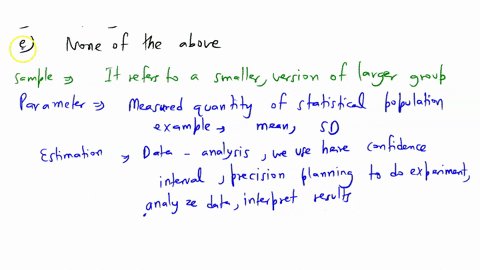 e) None of the above
Sample ⇒ It refers to a smaller, version of larger group
Parameter ⇒ Measured quantity of statistical population
example → mean, SD
Estimation ⇒ Data - analysis, we use have confidence
interval, precision planning to do experiment,
analyze data, interpret results